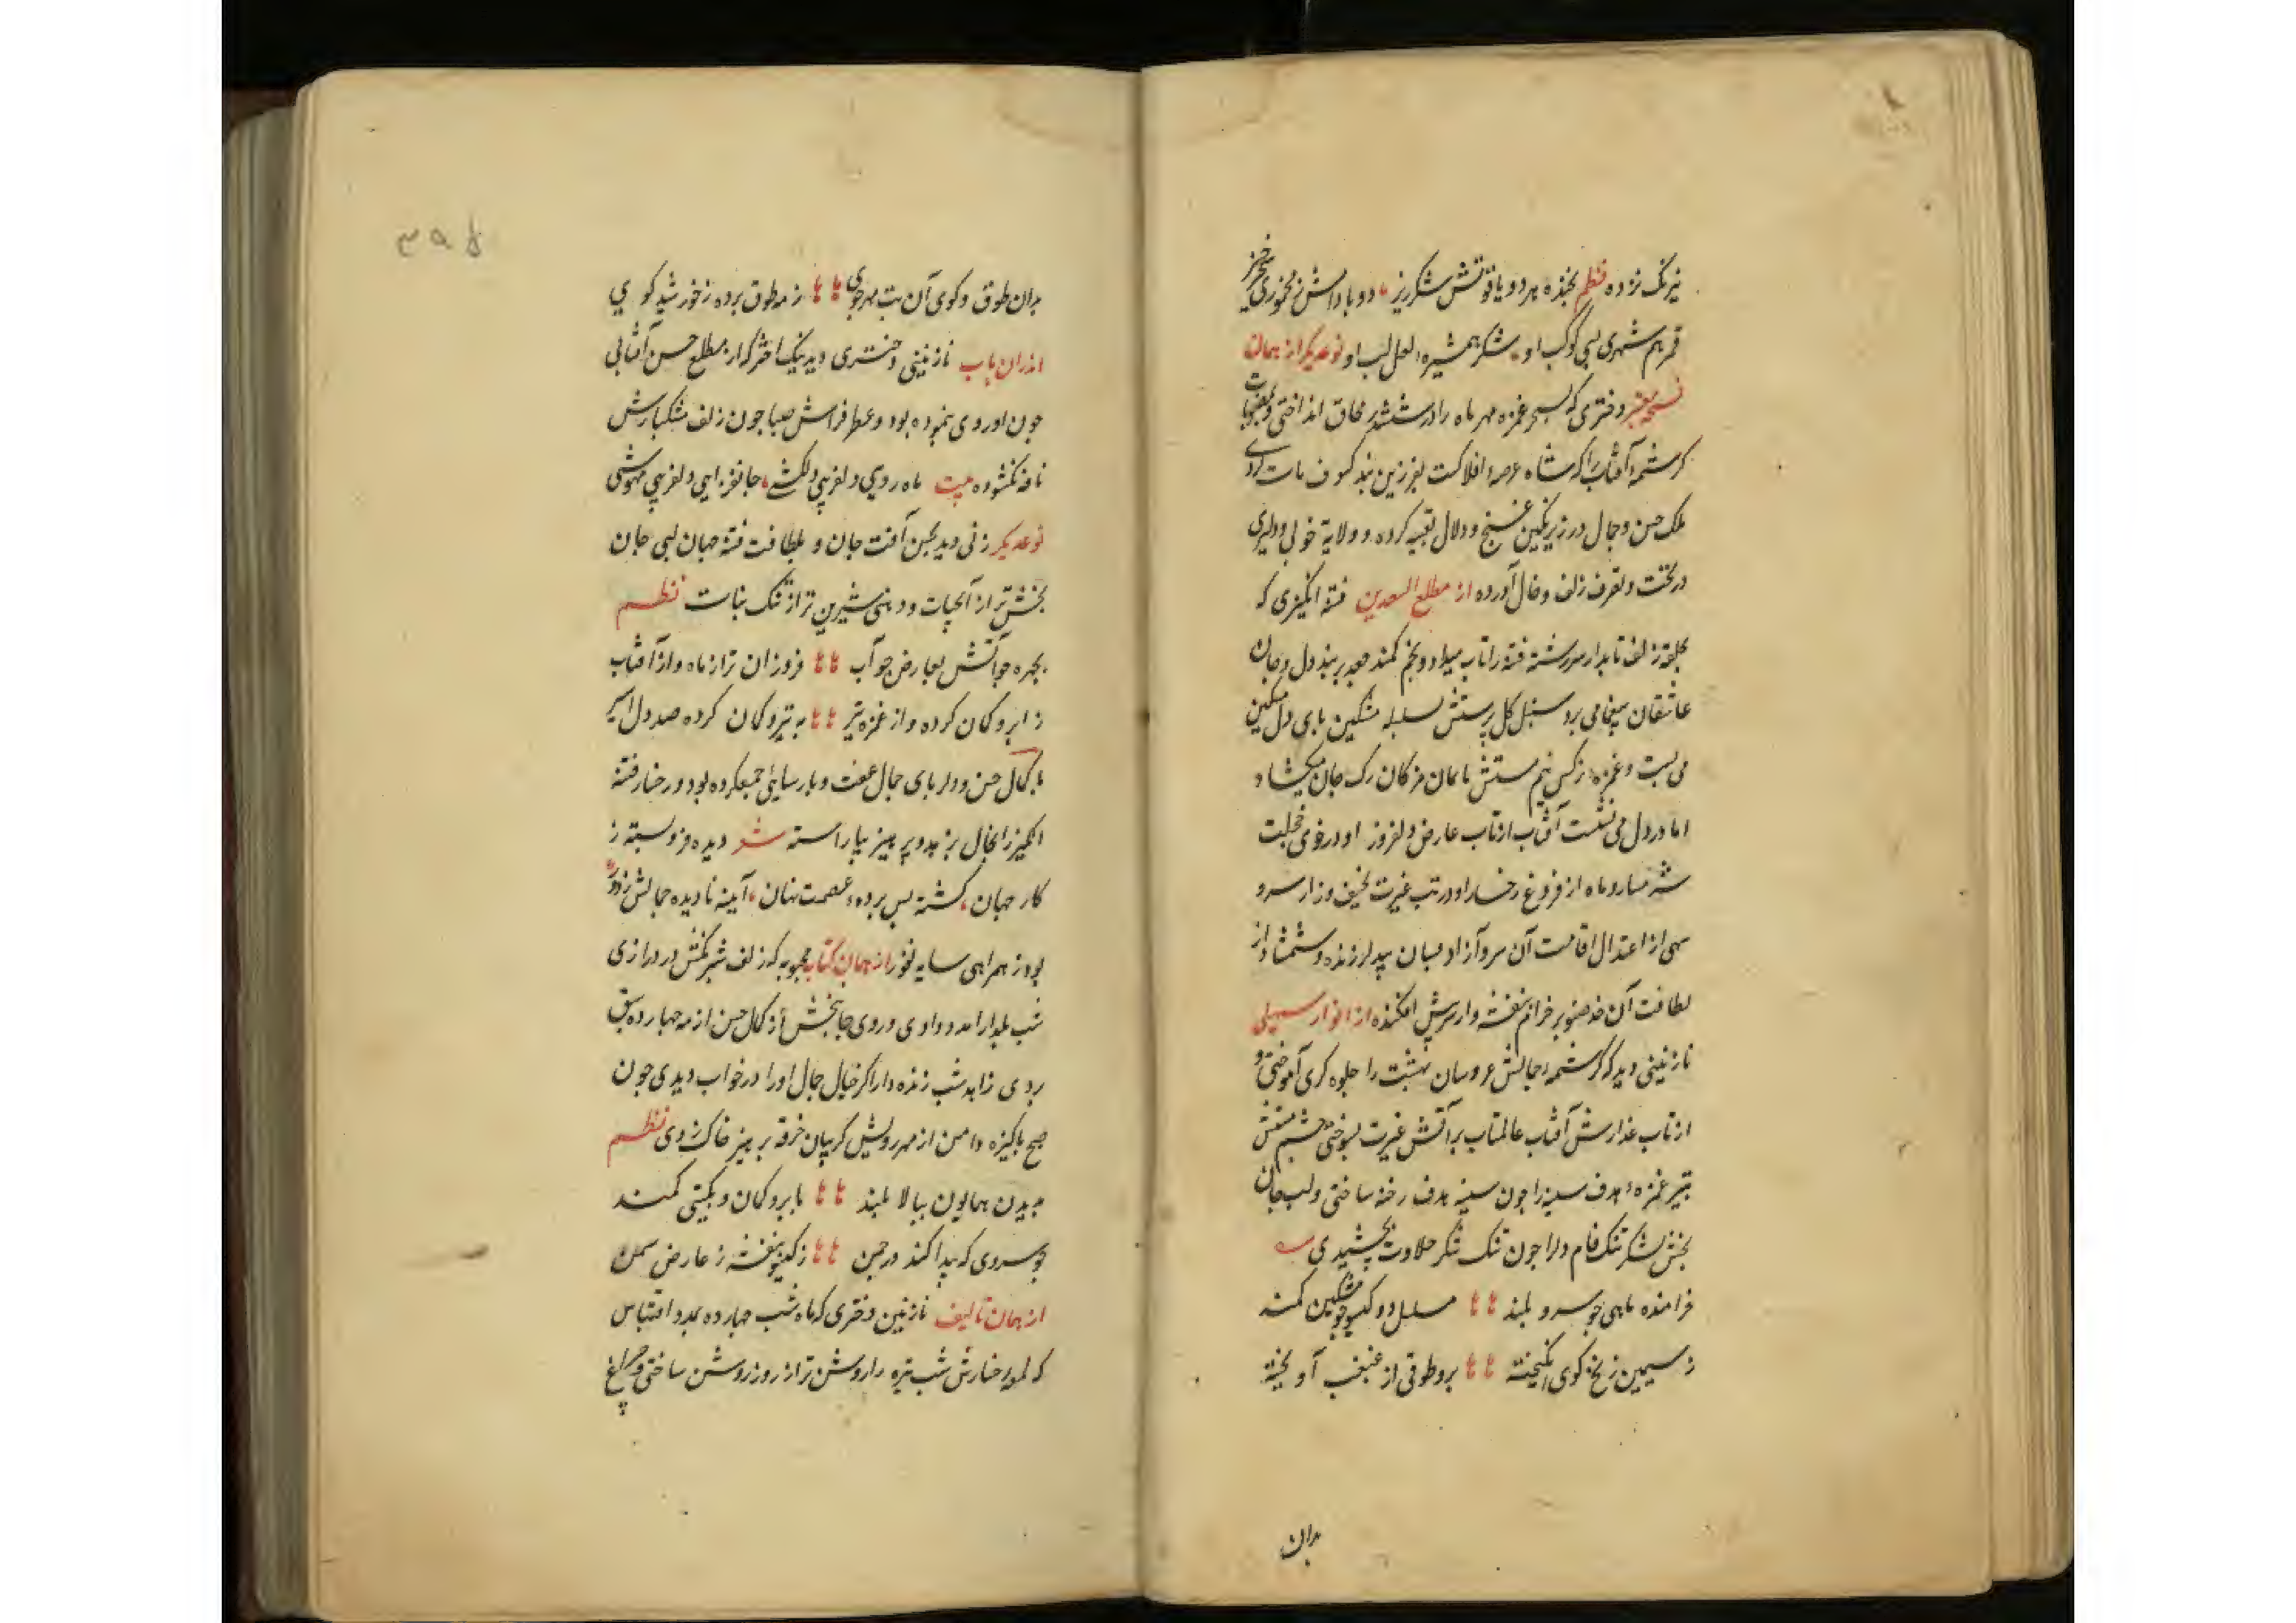 نیرنک زده نظم بخنده هر دو یاقوتش شکرریز دو باداش ز مخموری
قمر هم شهری کوکب او شکر همشیره لعل لب او نوعدیکر از همان
نسخه دختری که بسحر غمزه مهر ماه را در ششدر محاق انداختی و بمنصوبات
کرشمه آفتاب را که شاه عرصه افلاکست بفرزین بند کسوف مات کردی
ملک حسن و جمال در زیر نکین غنج و دلال تعبیه کرده و ولایة خوبی و دلبری
در تخت و تصرف زلف و خال آورده از مطلع السعدین فتنه انکیزی که
بحلقه زلف تابدار سررشته فتنه را تاب میداد و بخم کمند جعد بر بند دل و جان
عاشقان میغما می برد سنبل کل پرستش سلسله مشکین بپای دل مسکین
می بست و غمزه نرکس نیم مستش با کمان مژکان رک جان میکشاد
اما در دل می نشست آفتاب از تاب عارض دلفروز او در خوی خجلت
شرمسار و ماه از فروغ رخسار او در تب غیرت نحیف و زار سرو
سهی از اعتدال قامت آن سرو آزاد بسان بید لرزنده و شمشاد از
لطافت آن قد صنوبر خرام بنفشه وار سر پیش افکنده از انوار سهیلی
نازنینی دید که کرشمه جمالش عروسان بهشت را جلوه کری آموختی و
از تاب عذارش آفتاب عالمتاب بر آتش غیرت بسوختی چشم مستش
بتیر غمزه هدف سینه را چون سینه هدف رخنه ساختی و لب جان
بخش شکر تنک فام دلرا چون تنک شکر حلاوت بخشیدی
خرامنده ماهی چو سرو بلند مسلسل دو کیسو چو مشکین کمند
ز سیمین زنخ کوی انکیخته برو طوقی از غبغب آویخته
بدان
۳۹۵
بدان طوق و کوی آن بت مهرجوی ز مه طوق برده ز خورشید کوی
اندران باب نازنینی دختری دید نیک اختر که از مطلع حسن آفتابی
چون او روی ننموده بود و عطر فراش صبا چون زلف مشکبارش
نافه نکشوده بیت ماه رویی دلفریبی دلکشی جانفزایی دلفریبی مهوشی
نوعدیکر زنی دید بحسن آفت جان و بلطافت فتنه جهان لبی جان
بخش تر از آبحیات و دهنی شیرین تر از تنک نبات نظم
بچهره چو آتش بعارض چو آب فروزان تر از ماه و از آفتاب
ز ابرو کمان کرده و از غمزه تیر به تیر و کمان کرده صد دل اسیر
با کمال حسن و دلربای جمال عفت و پارسایی جمعکرده بود و رخسار فتنه
انکیز را بخال زهد و پرهیز بیاراسته شعر دیده فرو بسته ز
کار جهان کشته پس پرده عصمت نهان آینه نادیده جمالش ز دور
بود ز همراهی سایه نفور از همان کتاب محبوبه که زلف شبرنکش در درازی
شب یلدا را مدد دادی و روی جانبخش از کمال حسن از مه چهارده سبق
بردی زاهد شب زنده دار اکر خیال جمال او را در خواب دیدی چون
صبح پاکیزه دامن از مهر رویش کریبان خرقه پرهیز چاک زدی نظم
بدیدن همایون ببالا بلند بابرو کمان و بکیسی کمند
چو سروی که پیدا کند در چمن ز کیسو بنفشه ز عارض سمن
از همان تالیف نازنین دختری که ماه شب چهارده بمدد اقتباس
که لمعه رخسارش شب تیره را روشن تر از روز روشن ساختی و چراغ